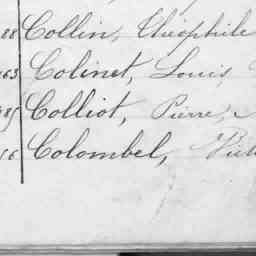 88 Collin, Théophile
463 Colinet, Louis
Colliot, Pierre,
16 Colombel,